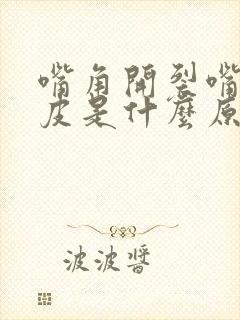 嘴角開裂嘴
皮是什麼原
波波醬